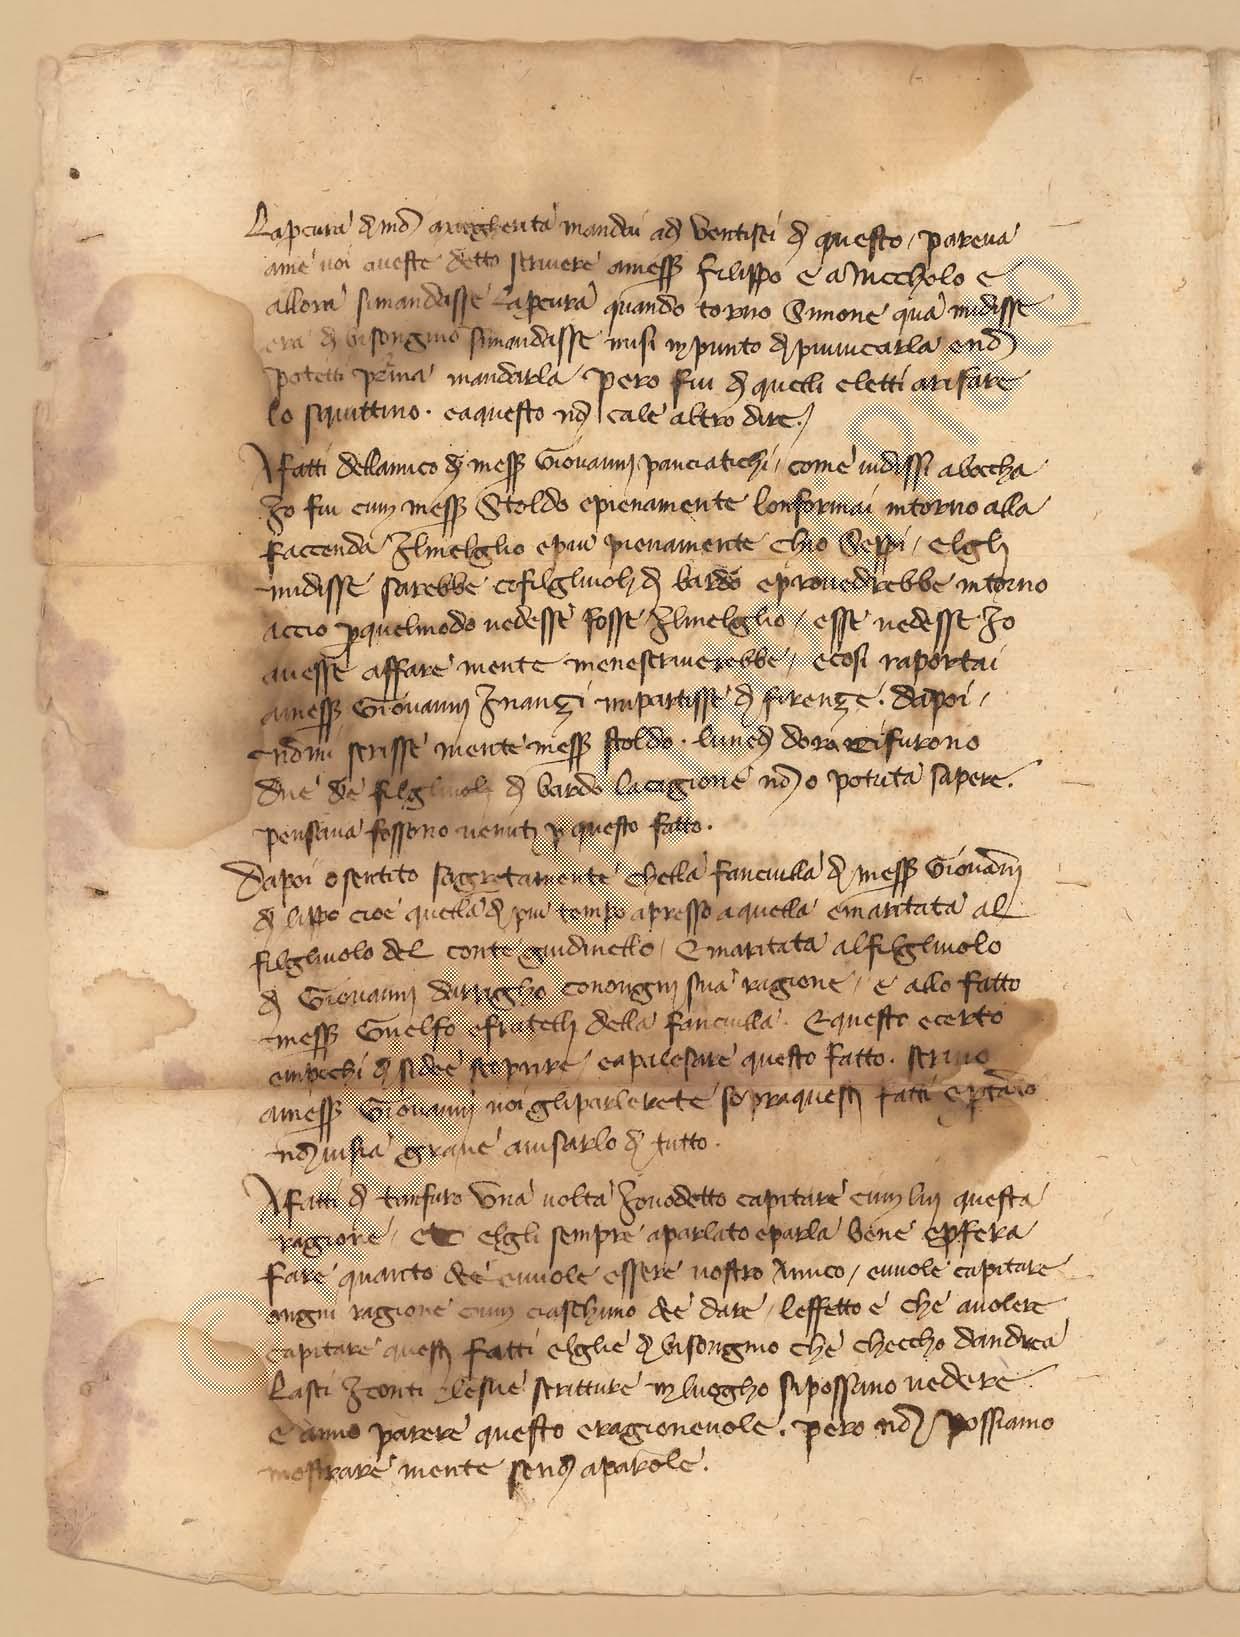 La pcura di mon margherita mandai adi ventisei di questo / pareva
ame voi aveste detto scrivere amess Filippo e a Niccholo e
allora simandasse la pcura quando torno Simone qua midisse
era di bisongnio simandasse misi in punto di piuvicarla e non
potetti prima mandarla pero fui di quelli eletti arifare
lo squittino · eaquesto non cale altro dire /
A fatti dellamico di mess Giovanni panciatichi / come vidissi abocha
Io fui cum mess Stoldo epienamente lonformai intorno alla
faccenda Ilmelglio epiu pienamente chio Seppi / elgli
midisse sarebbe cofilgliuoli di bardo eprovedrebbe intorno
accio per quelmodo vedesse fosse Ilmelglio / esse vedesse Io
avesse affare niente menescriverebbe / ecosi raportai
amess Giovanni Inanzi mipartisse di firenze · dapoi /
non mi scrisse niente mess Stoldo · lunedi cifurono
due de filgliuoli di bardo lacagione non o potuta sapere ·
pensava fossono venuti per questo fatto ·
Dapoi o sentito segretamente chella fanciulla di mess Giovanni
di lippo cioe quella di piu tempo apresso aquella emaritata al
filgliuolo del conte guidinello / Emaritata alfilgliuolo
di Giovanni darrigho conongni sua ragione / e allo fatto
mess Guelfo efratelli della fanciulla · Equesto ecerto
di side scoprire / eapalesare questo fatto · scrivo
amess Giovanni voi gliparlerete sopraquesti fatti
non visia grave avisarlo di tutto ·
A fatti di una volta Iovodetto capitare cum lui questa
ragione / et elgli sempre aparlato eparla bene
fare quanto dee evuole essere vostro Amico / evuole capitare
ongni ragione cum ciaschuno de dare / leffetto e che avolere
capitare questi fatti elglie di bisongnio che checcho dandrea
lasci Iconti elesue scritture in luogho sipossano vedere
e anno parere questo eragionevole · pero non possiamo
mostrare niente senon aparole ·